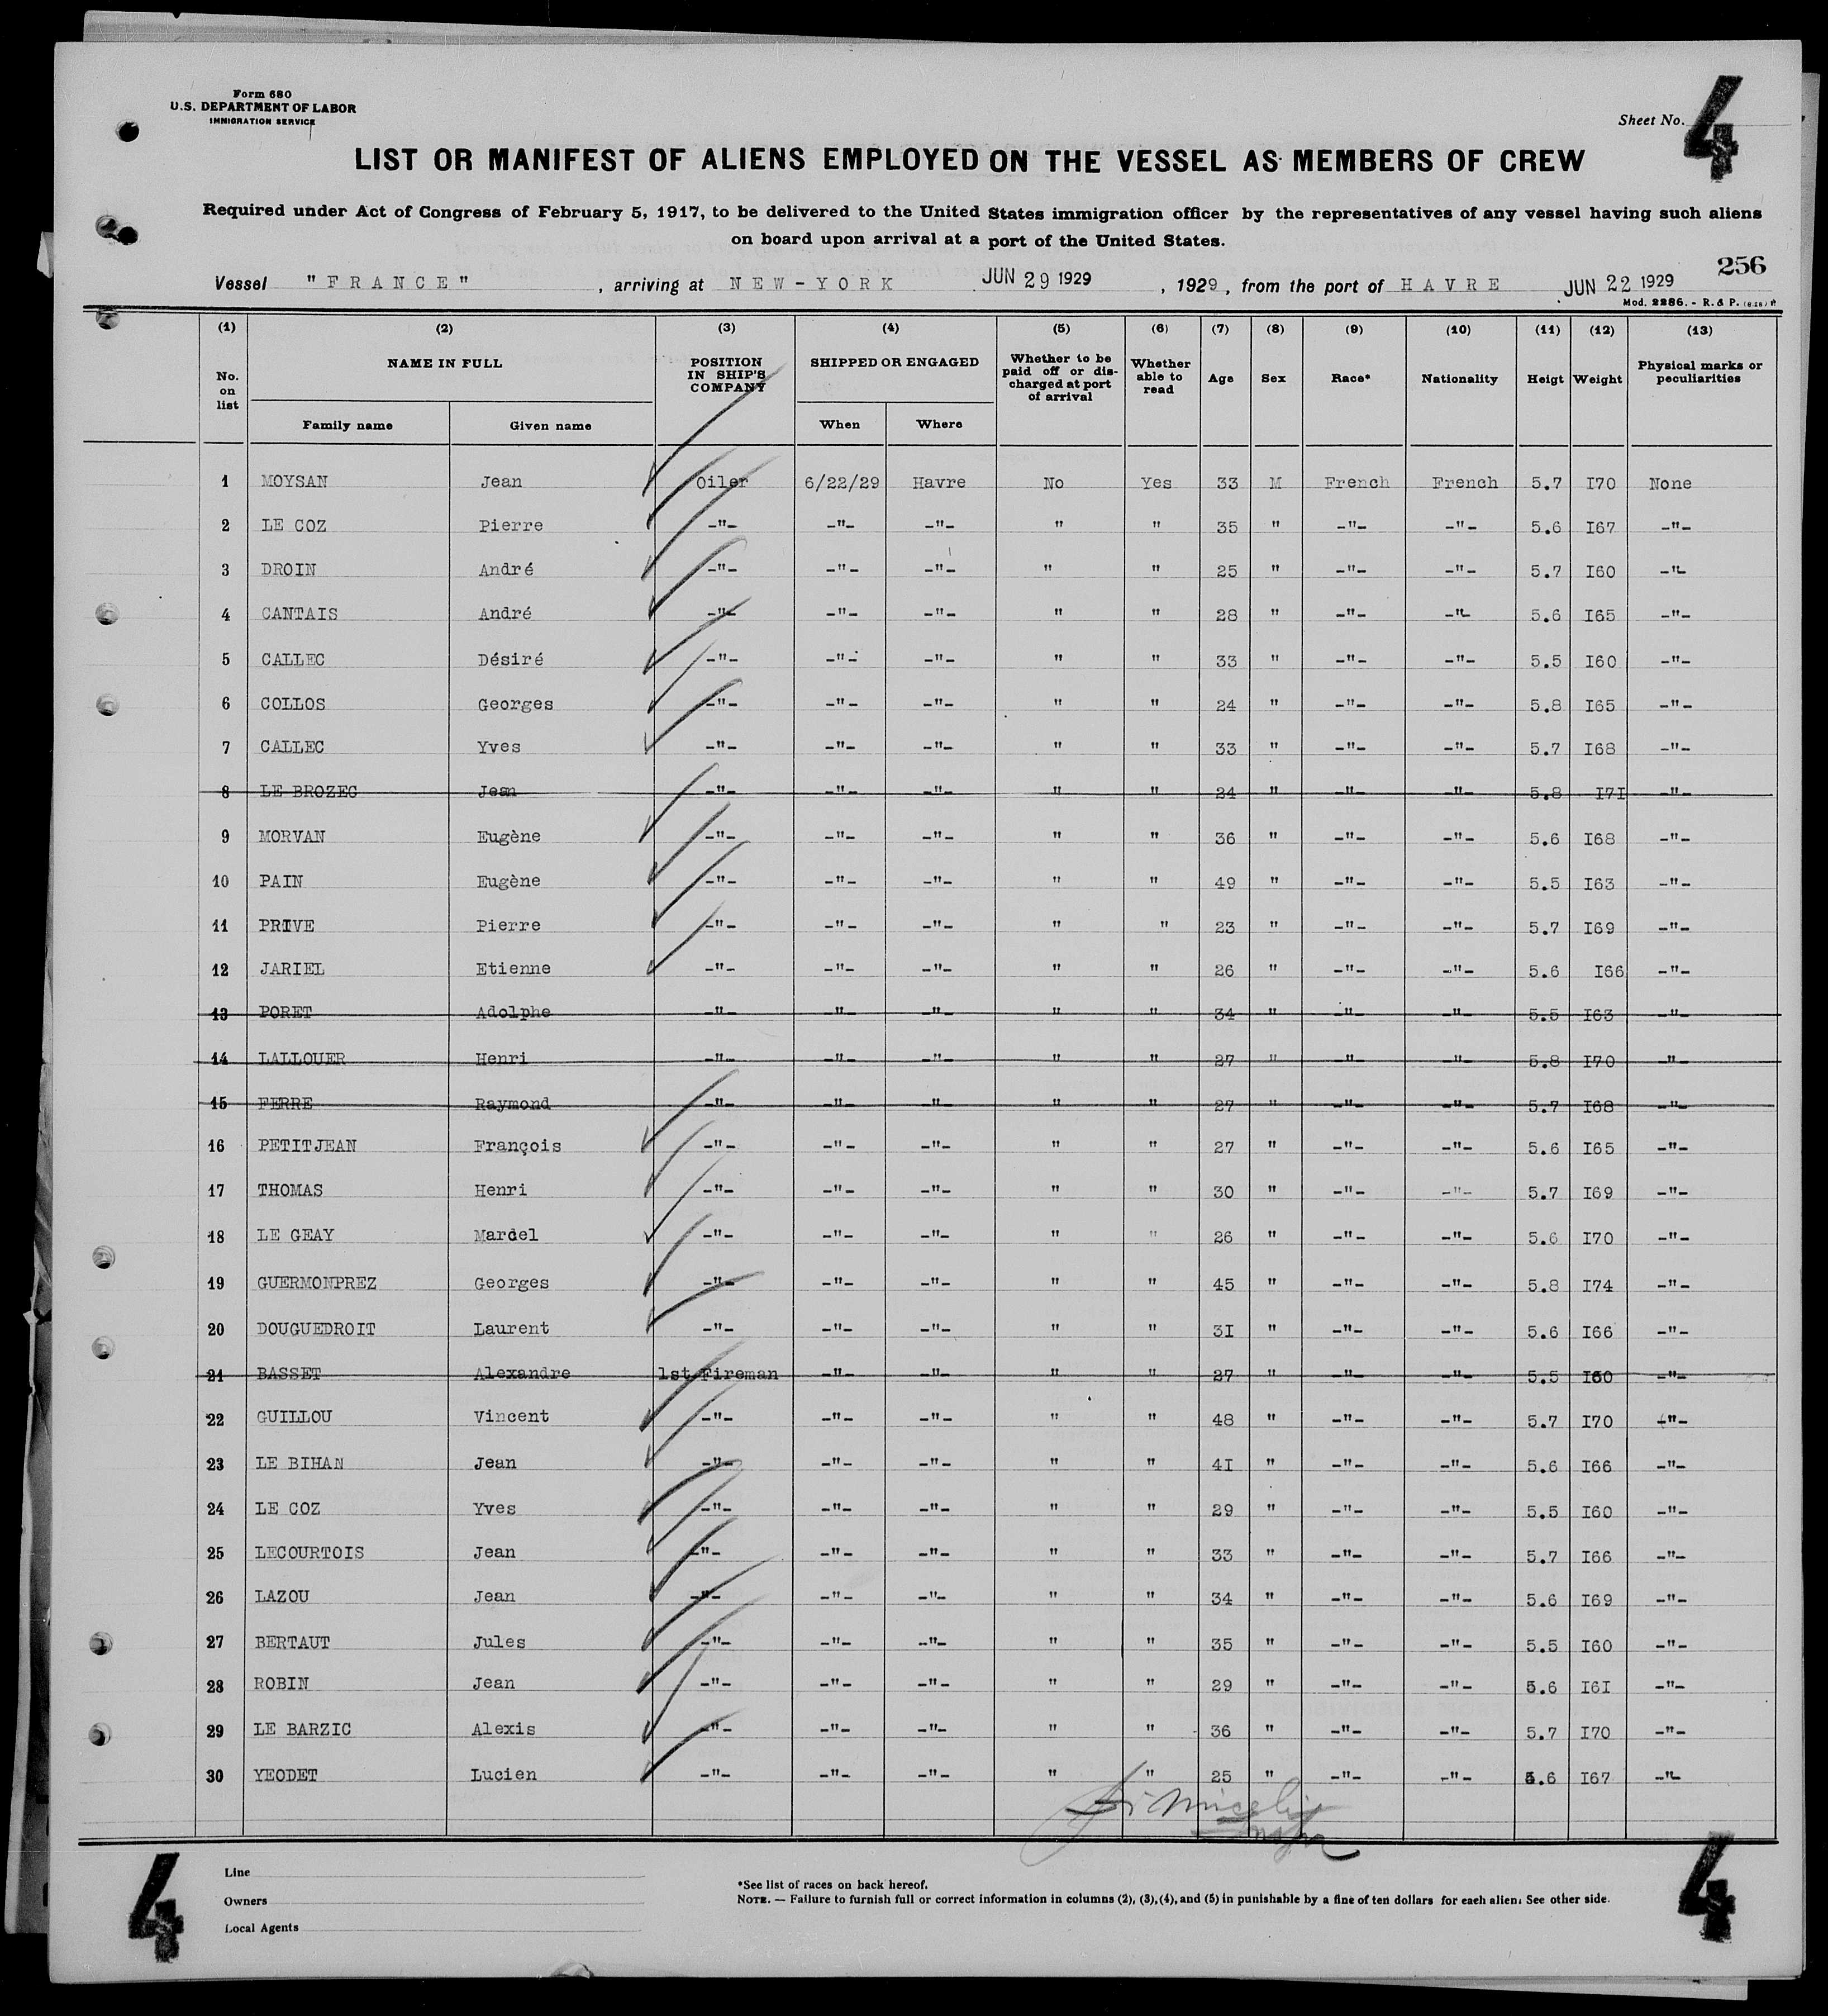 Form 680
U.S. DEPARTMENT OF LABOR
IMMIGRATION SERVICE
Sheet No. 4
LIST OR MANIFEST OF ALIENS EMPLOYED ON THE VESSEL AS MEMBERS OF CREW
Required under Act of Congress of February 5, 1917, to be delivered to the United States immigration officer by the representatives of any vessel having such aliens
on board upon arrival at a port of the United States.
256
Vessel "FRANCE", arriving at NEW-YORK JUN 29 1929, 1929, from the port of HAVRE JUN 22 1929
Mod. 2286. - R. & P.
(1) (2) (3) (4) (5) (6) (7) (8) (9) (10) (11) (12) (13)
No. on list NAME IN FULL POSITION IN SHIP'S COMPANY SHIPPED OR ENGAGED Whether to be paid off or discharged at port of arrival Whether able to read Age Sex Race* Nationality Heigt Weight Physical marks or peculiarities
Family name Given name When Where
1 MOYSAN Jean Oiler 6/22/29 Havre No Yes 33 M French French 5.7 I70 None
2 LE COZ Pierre -"- -"- -"- " " 35 " -"- -"- 5.6 I67 -"-
3 DROIN André -"- -"- -"- " " 25 " -"- -"- 5.7 I60 -"-
4 CANTAIS André -"- -"- -"- " " 28 " -"- -"- 5.6 I65 -"-
5 CALLEC Désiré -"- -"- -"- " " 33 " -"- -"- 5.5 I60 -"-
6 COLLOS Georges -"- -"- -"- " " 24 " -"- -"- 5.8 I65 -"-
7 CALLEC Yves -"- -"- -"- " " 33 " -"- -"- 5.7 I68 -"-
8 LE BROZEC Jean -"- -"- -"- " " 24 " -"- -"- 5.8 I7I -"-
9 MORVAN Eugène -"- -"- -"- " " 36 " -"- -"- 5.6 I68 -"-
10 PAIN Eugène -"- -"- -"- " " 49 " -"- -"- 5.5 I63 -"-
11 PRIVE Pierre -"- -"- -"- " " 23 " -"- -"- 5.7 I69 -"-
12 JARIEL Etienne -"- -"- -"- " " 26 " -"- -"- 5.6 I66 -"-
13 PORET Adolphe -"- -"- -"- " " 34 " -"- -"- 5.5 I63 -"-
14 LALLOUER Henri -"- -"- -"- " " 27 " -"- -"- 5.8 I70 -"-
15 FERRE Raymond -"- -"- -"- " " 27 " -"- -"- 5.7 I68 -"-
16 PETITJEAN François -"- -"- -"- " " 27 " -"- -"- 5.6 I65 -"-
17 THOMAS Henri -"- -"- -"- " " 30 " -"- -"- 5.7 I69 -"-
18 LE GEAY Marcel -"- -"- -"- " " 26 " -"- -"- 5.6 I70 -"-
19 GUERMONPREZ Georges -"- -"- -"- " " 45 " -"- -"- 5.8 I74 -"-
20 DOUGUEDROIT Laurent -"- -"- -"- " " 3I " -"- -"- 5.6 I66 -"-
21 BASSET Alexandre 1st Fireman -"- -"- " " 27 " -"- -"- 5.5 I60 -"-
22 GUILLOU Vincent -"- -"- -"- " " 48 " -"- -"- 5.7 I70 -"-
23 LE BIHAN Jean -"- -"- -"- " " 4I " -"- -"- 5.6 I66 -"-
24 LE COZ Yves -"- -"- -"- " " 29 " -"- -"- 5.5 I60 -"-
25 LECOURTOIS Jean -"- -"- -"- " " 33 " -"- -"- 5.7 I66 -"-
26 LAZOU Jean -"- -"- -"- " " 34 " -"- -"- 5.6 I69 -"-
27 BERTAUT Jules -"- -"- -"- " " 35 " -"- -"- 5.5 I60 -"-
28 ROBIN Jean -"- -"- -"- " " 29 " -"- -"- 5.6 I6I -"-
29 LE BARZIC Alexis -"- -"- -"- " " 36 " -"- -"- 5.7 I70 -"-
30 YEODET Lucien -"- -"- -"- " " 25 " -"- -"- 5.6 I67 -"-
Line
Owners
Local Agents
*See list of races on back hereof.
NOTE. — Failure to furnish full or correct information in columns (2), (3), (4), and (5) in punishable by a fine of ten dollars for each alien. See other side.
4 4